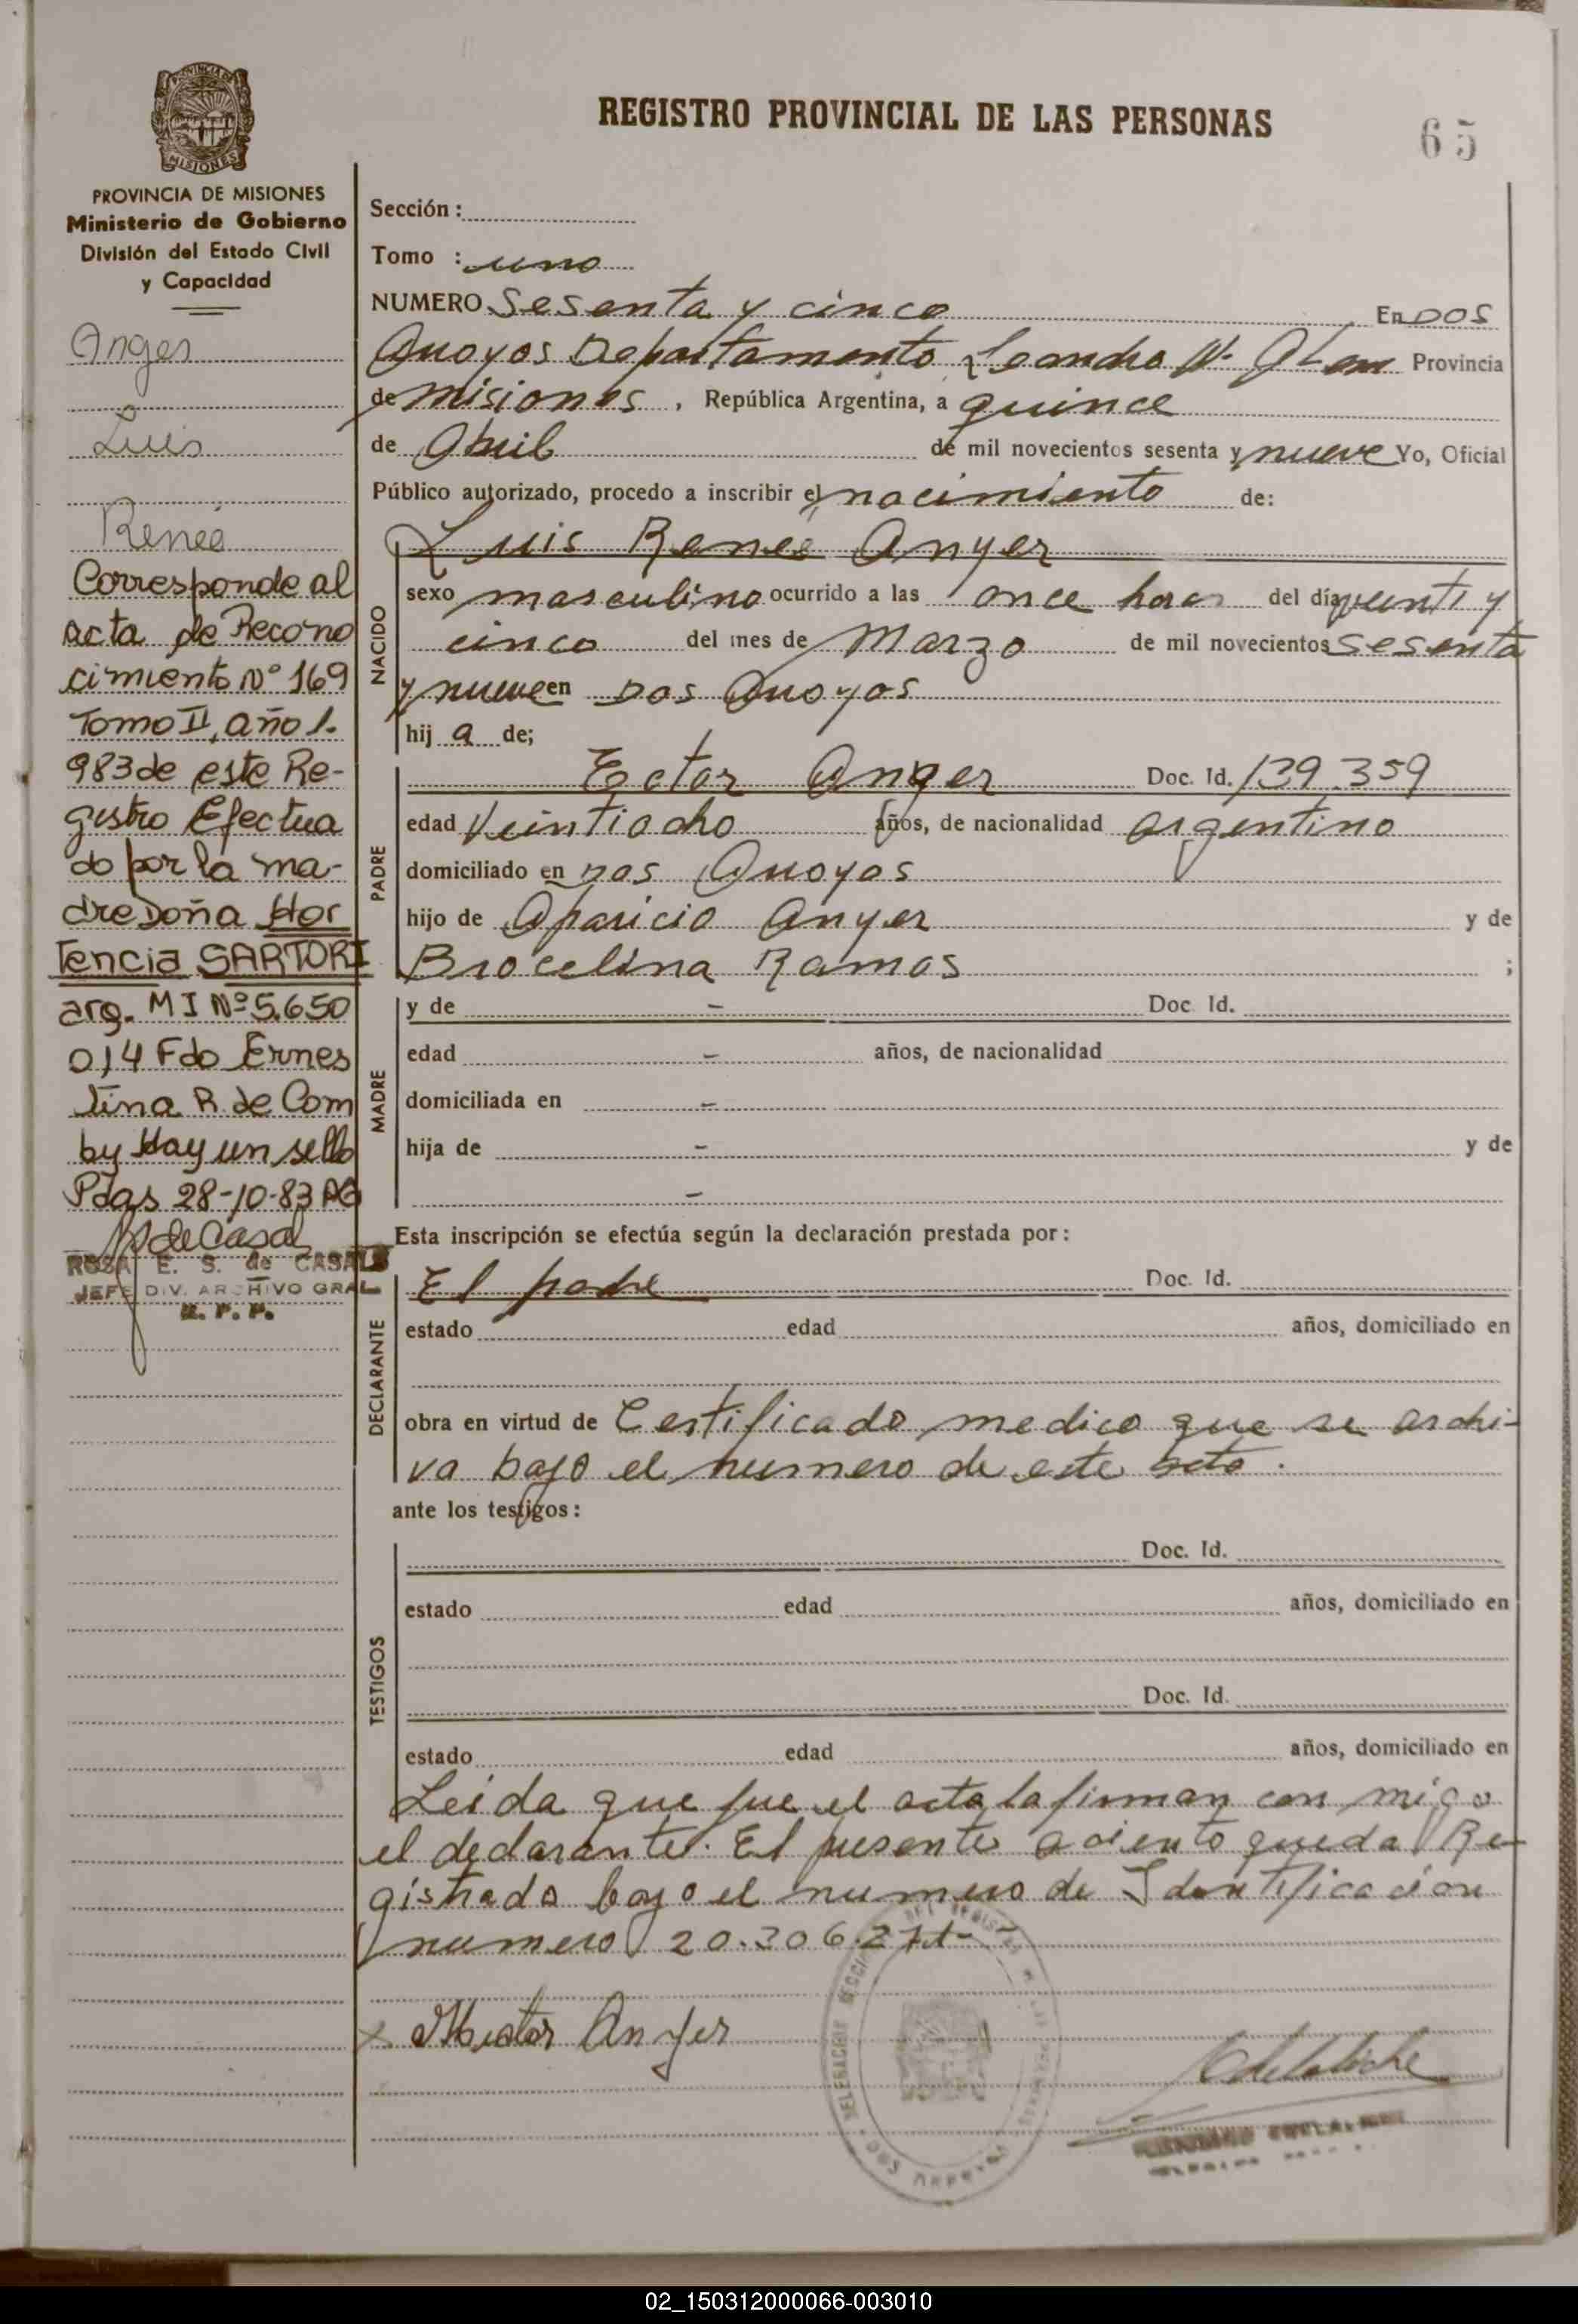 REGISTRO PROVINCIAL DE LAS PERSONAS
65
PROVINCIA DE MISIONES
Ministerio de Gobierno
División del Estado Civil
y Capacidad
Anger
Luis
Reneé
Corresponde al
acta de Recono
cimiento Nº 169
Tomo II, año 1.
983 de este Re-
gistro Efectua
do por la ma-
dre Doña Hor
tencia SARTORI
arg. M I Nº 5.650
014 Fdo Ernes
tina R. de Com
by Hay un sello
Pdas 28-10-83 AG
ROSA E. S. de CASALS
JEFE DIV. ARCHIVO GRAL
R. P. P.
Sección :
Tomo : uno
NUMERO Sesenta y cinco En DOS
Arroyos Departamento Leandro N. Alem Provincia
de misiones , República Argentina, a quince
de Abril de mil novecientos sesenta y nueve Yo, Oficial
Público autorizado, procedo a inscribir el nacimiento de:
NACIDO
Luis Reneé Anyer
sexo masculino ocurrido a las once horas del día veinti y
cinco del mes de Marzo de mil novecientos sesenta
y nueve en Dos Arroyos
hij a de;
PADRE
Ector Anger Doc. Id. 139.359
edad Veintiocho años, de nacionalidad argentino
domiciliado en Dos Arroyos
hijo de Aparicio Anyer y de
Brocelina Ramos ;
MADRE
y de - Doc. Id.
edad - años, de nacionalidad
domiciliada en -
hija de - y de
-
Esta inscripción se efectúa según la declaración prestada por :
DECLARANTE
El padre Doc. Id.
estado edad años, domiciliado en
obra en virtud de Certificado medico que se archi-
va bajo el numero de este acto.
ante los testigos :
TESTIGOS
Doc. Id.
estado edad años, domiciliado en
Doc. Id.
estado edad años, domiciliado en
Leida que fue el acta la firman con migo
el declarante. El presente aciento queda Re-
gistrado bajo el numero de Identificacion
numero 20.306.271-
Hector Anyer
02_150312000066-003010